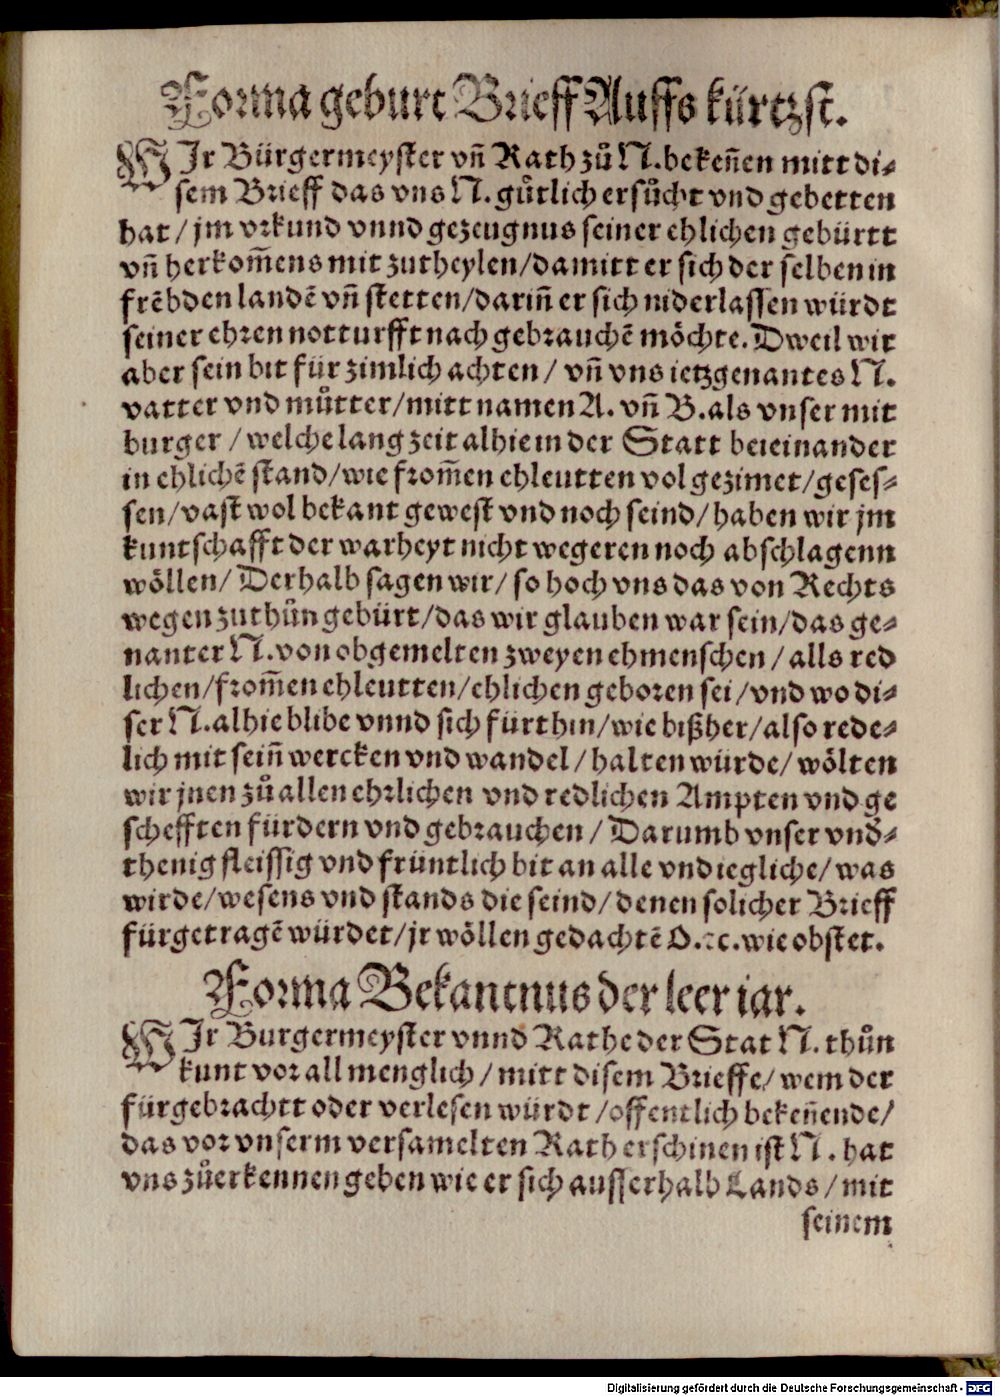 Forma geburt Brieff Auffs kürtzst.
WJr Bürgermeyster vn̄ Rath zů N. beken̄en mitt di⸗
sem Brieff das vns N. gůtlich ersůcht vnd gebetten
hat / jm vrkund vnnd gezeugnus seiner ehlichen gebürtt
vn̄ herkom̄ens mit zutheylen / damitt er sich der selben in
frēbden landē vn̄ stetten / darin̄ er sich niderlassen würdt
seiner ehren notturfft nach gebrauchē möchte. Dweil wir
aber sein bit für zimlich achten / vn̄ vns ietzgenantes N.
vatter vnd můtter / mitt namen A. vn̄ B. als vnser mit
burger / welche lang zeit alhie in der Statt beieinander
in ehlichē stand / wie from̄en ehleutten vol gezimet / geses⸗
sen / vast wol bekant gewest vnd noch seind / haben wir jm
kuntschafft der warheyt nicht wegeren noch abschlagenn
wöllen / Derhalb sagen wir / so hoch vns das von Rechts
wegen zuthůn gebürt / das wir glauben war sein / das ge⸗
nanter N. von obgemelten zweyen ehmenschen / alls red
lichen / from̄en ehleutten / ehlichen geboren sei / vnd wo di⸗
ser N. alhie blibe vnnd sich fürthin / wie bißher / also rede⸗
lich mit sein̄ wercken vnd wandel / halten würde / wölten
wir jnen zů allen ehrlichen vnd redlichen Ampten vnd ge
schefften fürdern vnd gebrauchen / Darumb vnser vnd̄⸗
thenig fleissig vnd früntlich bit an alle vnd iegliche / was
wirde / wesens vnd stands die seind / denen solicher Brieff
fürgetragē würdet / jr wöllen gedachtē O. ꝛc. wie obstet.
Forma Bekantnus der leer iar.
WJr Burgermeyster vnnd Rathe der Stat N. thůn
kunt vor all menglich / mitt disem Brieffe / wem der
fürgebrachtt oder verlesen würdt / offentlich beken̄ende /
das vor vnserm versamelten Rath erschinen ist N. hat
vns zůerkennen geben wie er sich ausserhalb Lands / mit
seinem
Digitalisierung gefördert durch die Deutsche Forschungsgemeinschaft - DFG